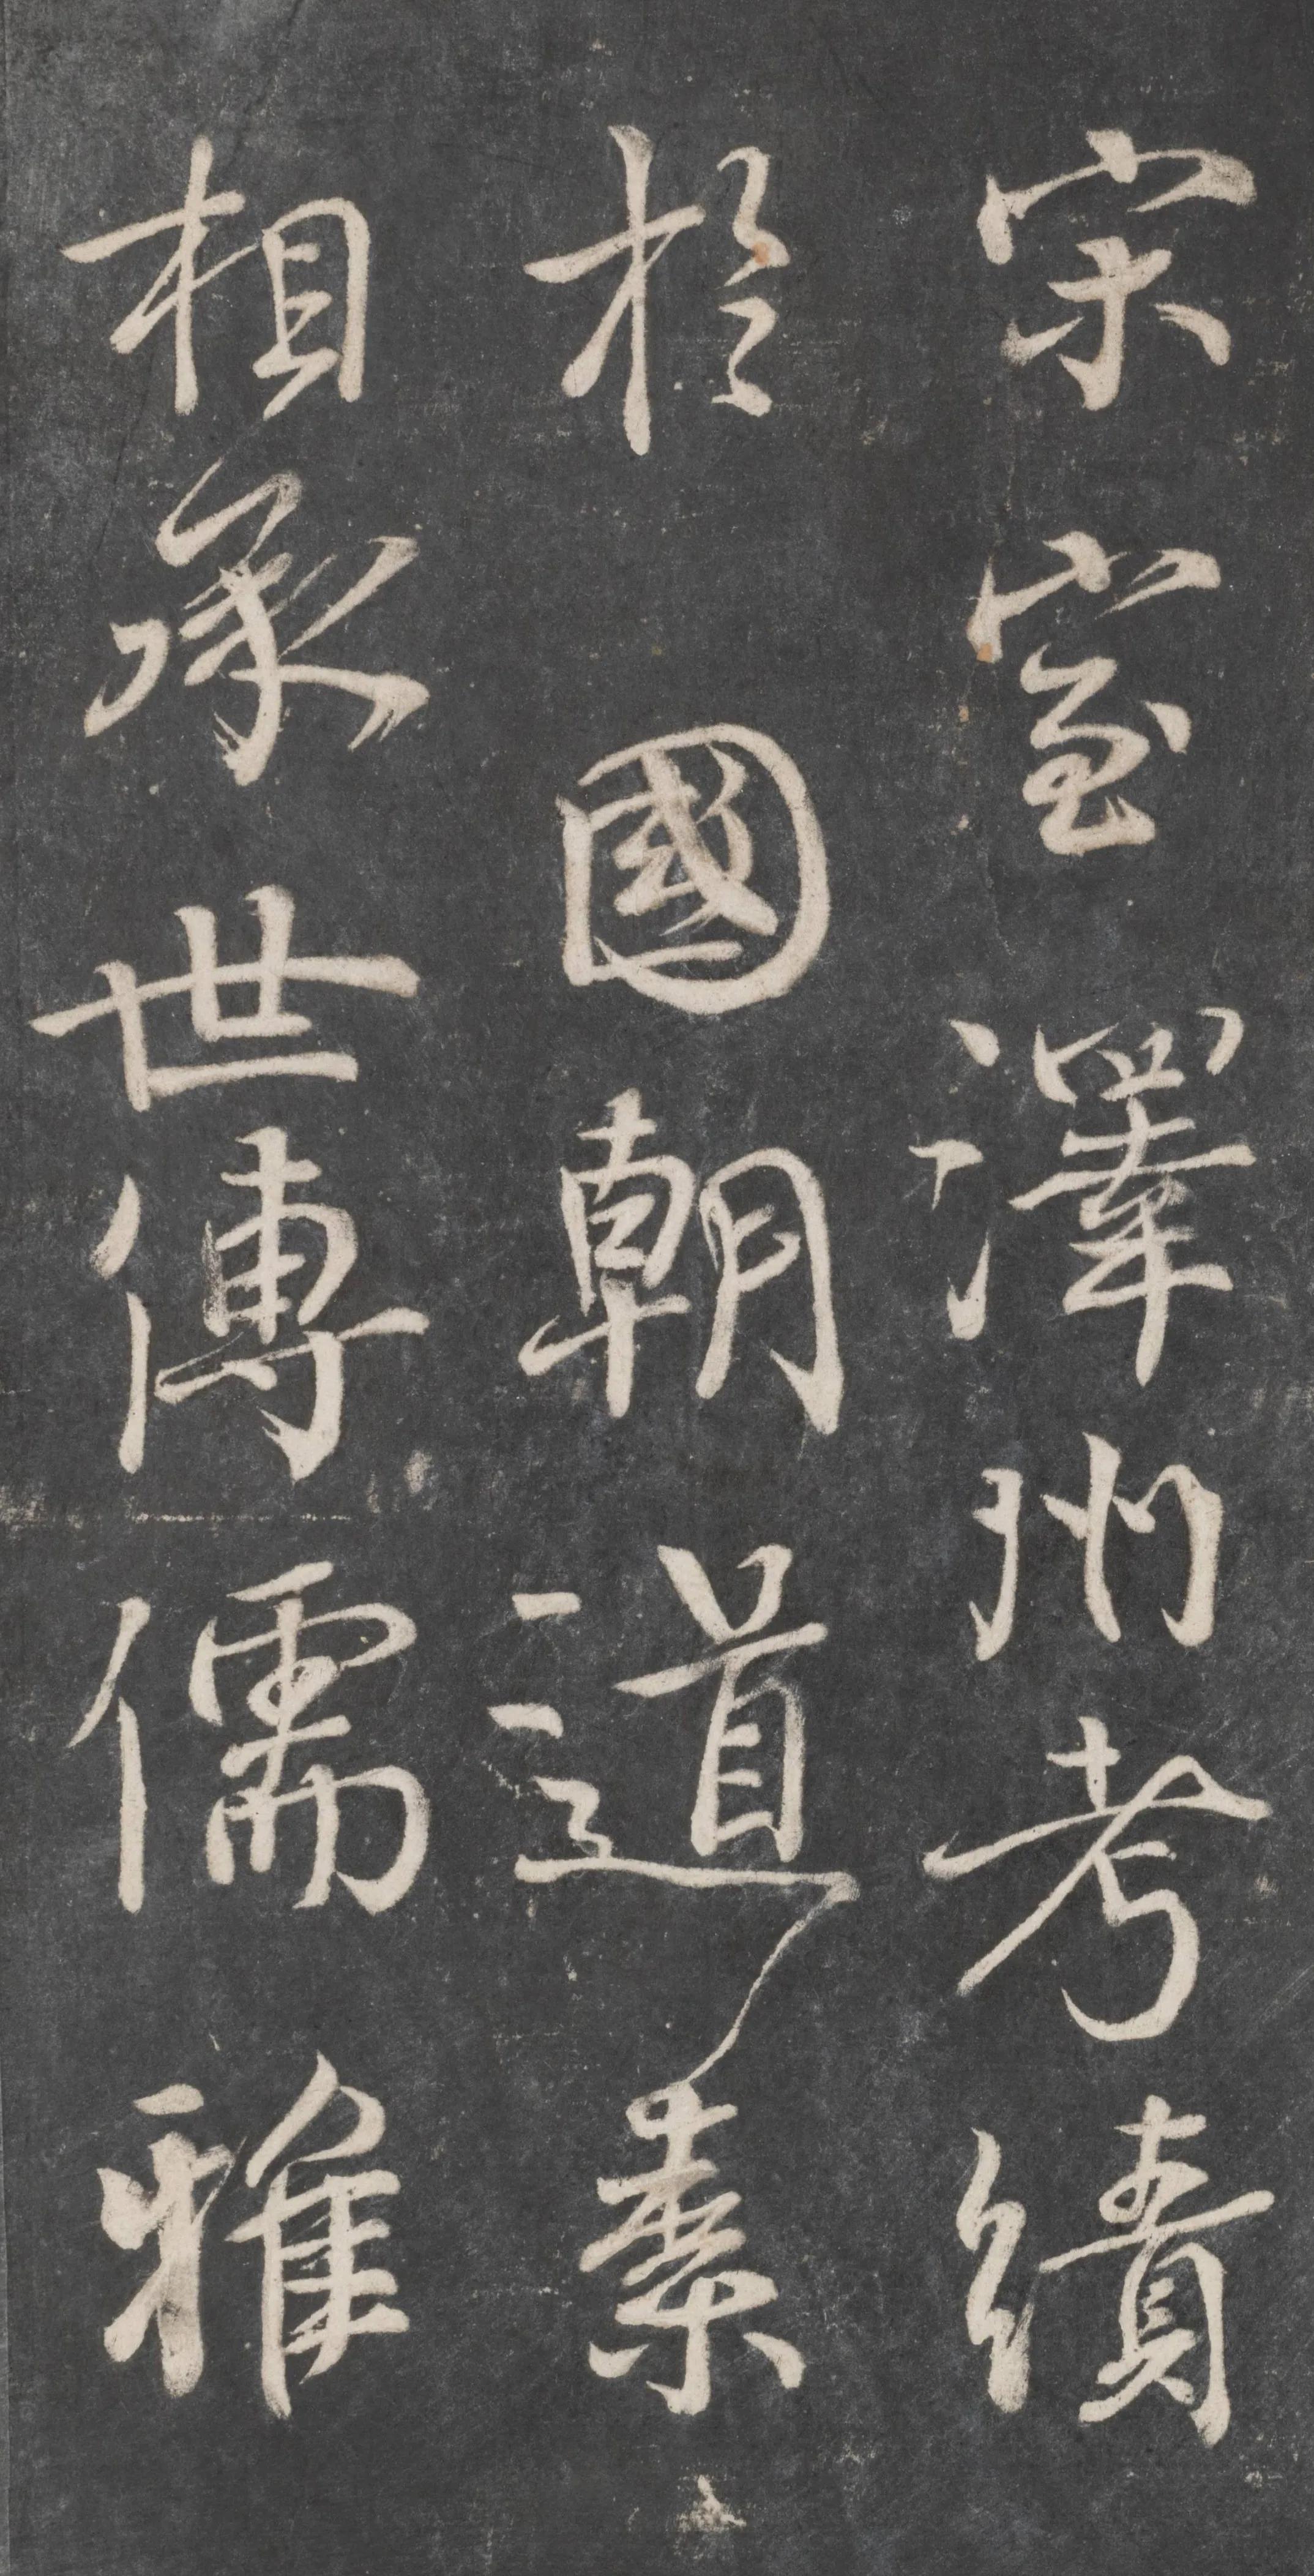 宗室澤州考績
於國朝道素
相承世傳儒雅